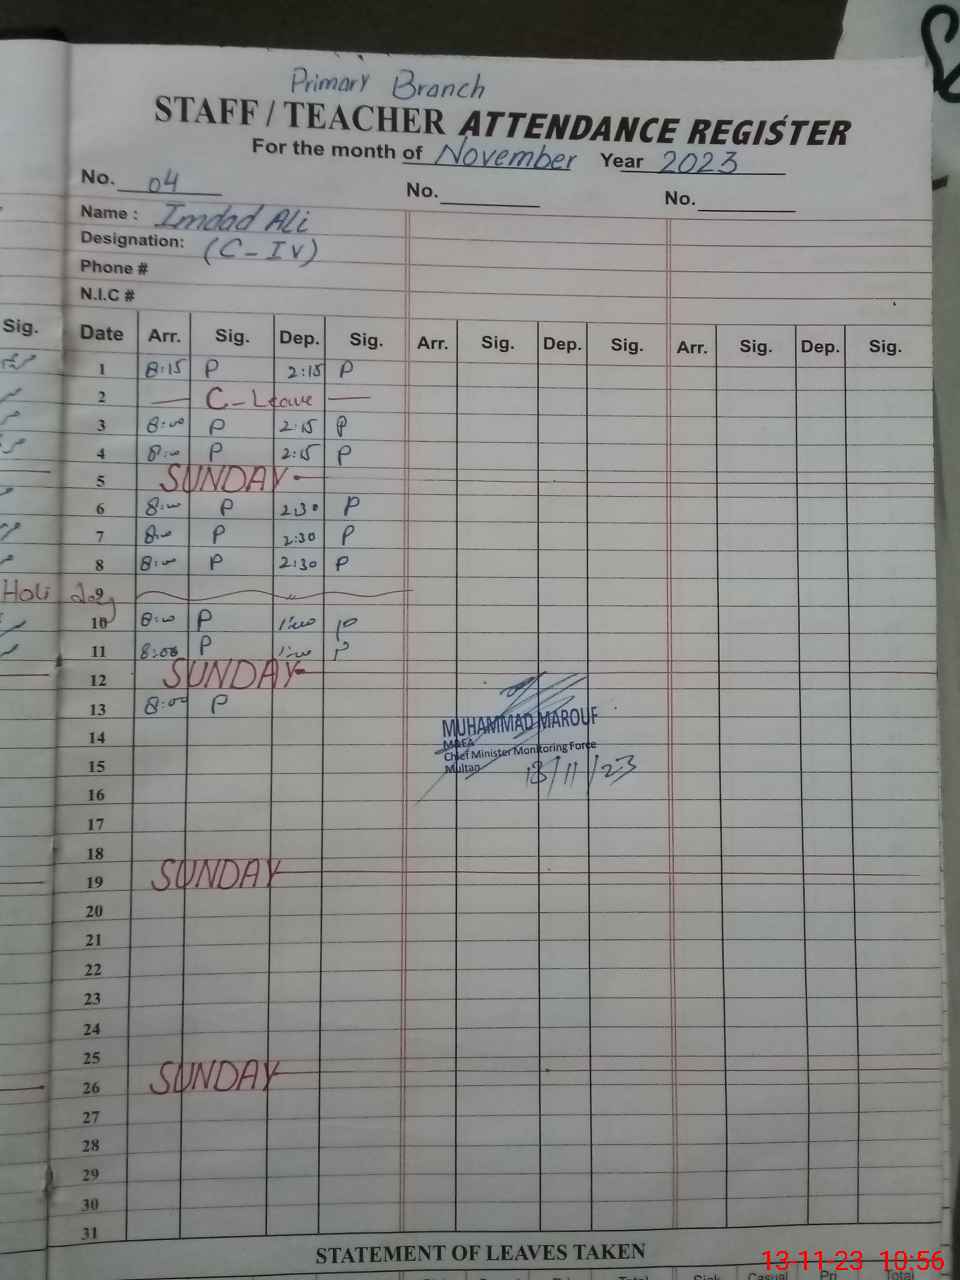 Primary Branch
STAFF / TEACHER ATTENDANCE REGISTER
For the month of November Year 2023
No. 04 No. No.
Name : Imdad Ali
Designation: (C-IV)
Phone #
N.I.C #
Sig. Date Arr. Sig. Dep. Sig. Arr. Sig. Dep. Sig. Arr. Sig. Dep. Sig.
1 8:15 P 2:15 P
2 C-Leave
3 8:00 P 2:15 P
4 8:00 P 2:15 P
5 SUNDAY
6 8:00 P 2:30 P
7 8:00 P 2:30 P
8 8:00 P 2:30 P
Holi day 9
10 8:00 P 1:00 P
11 8:00 P 1:00 P
12 SUNDAY
13 8:00 P
14
15
16
17
18
19 SUNDAY
20
21
22
23
24
25
26 SUNDAY
27
28
29
30
31
MUHAMMAD MAROUF
MAEA
Chief Minister Monitoring Force
Multan 13/11/23
STATEMENT OF LEAVES TAKEN
13-11-23 10:56
Total Sick Casual Pri Total